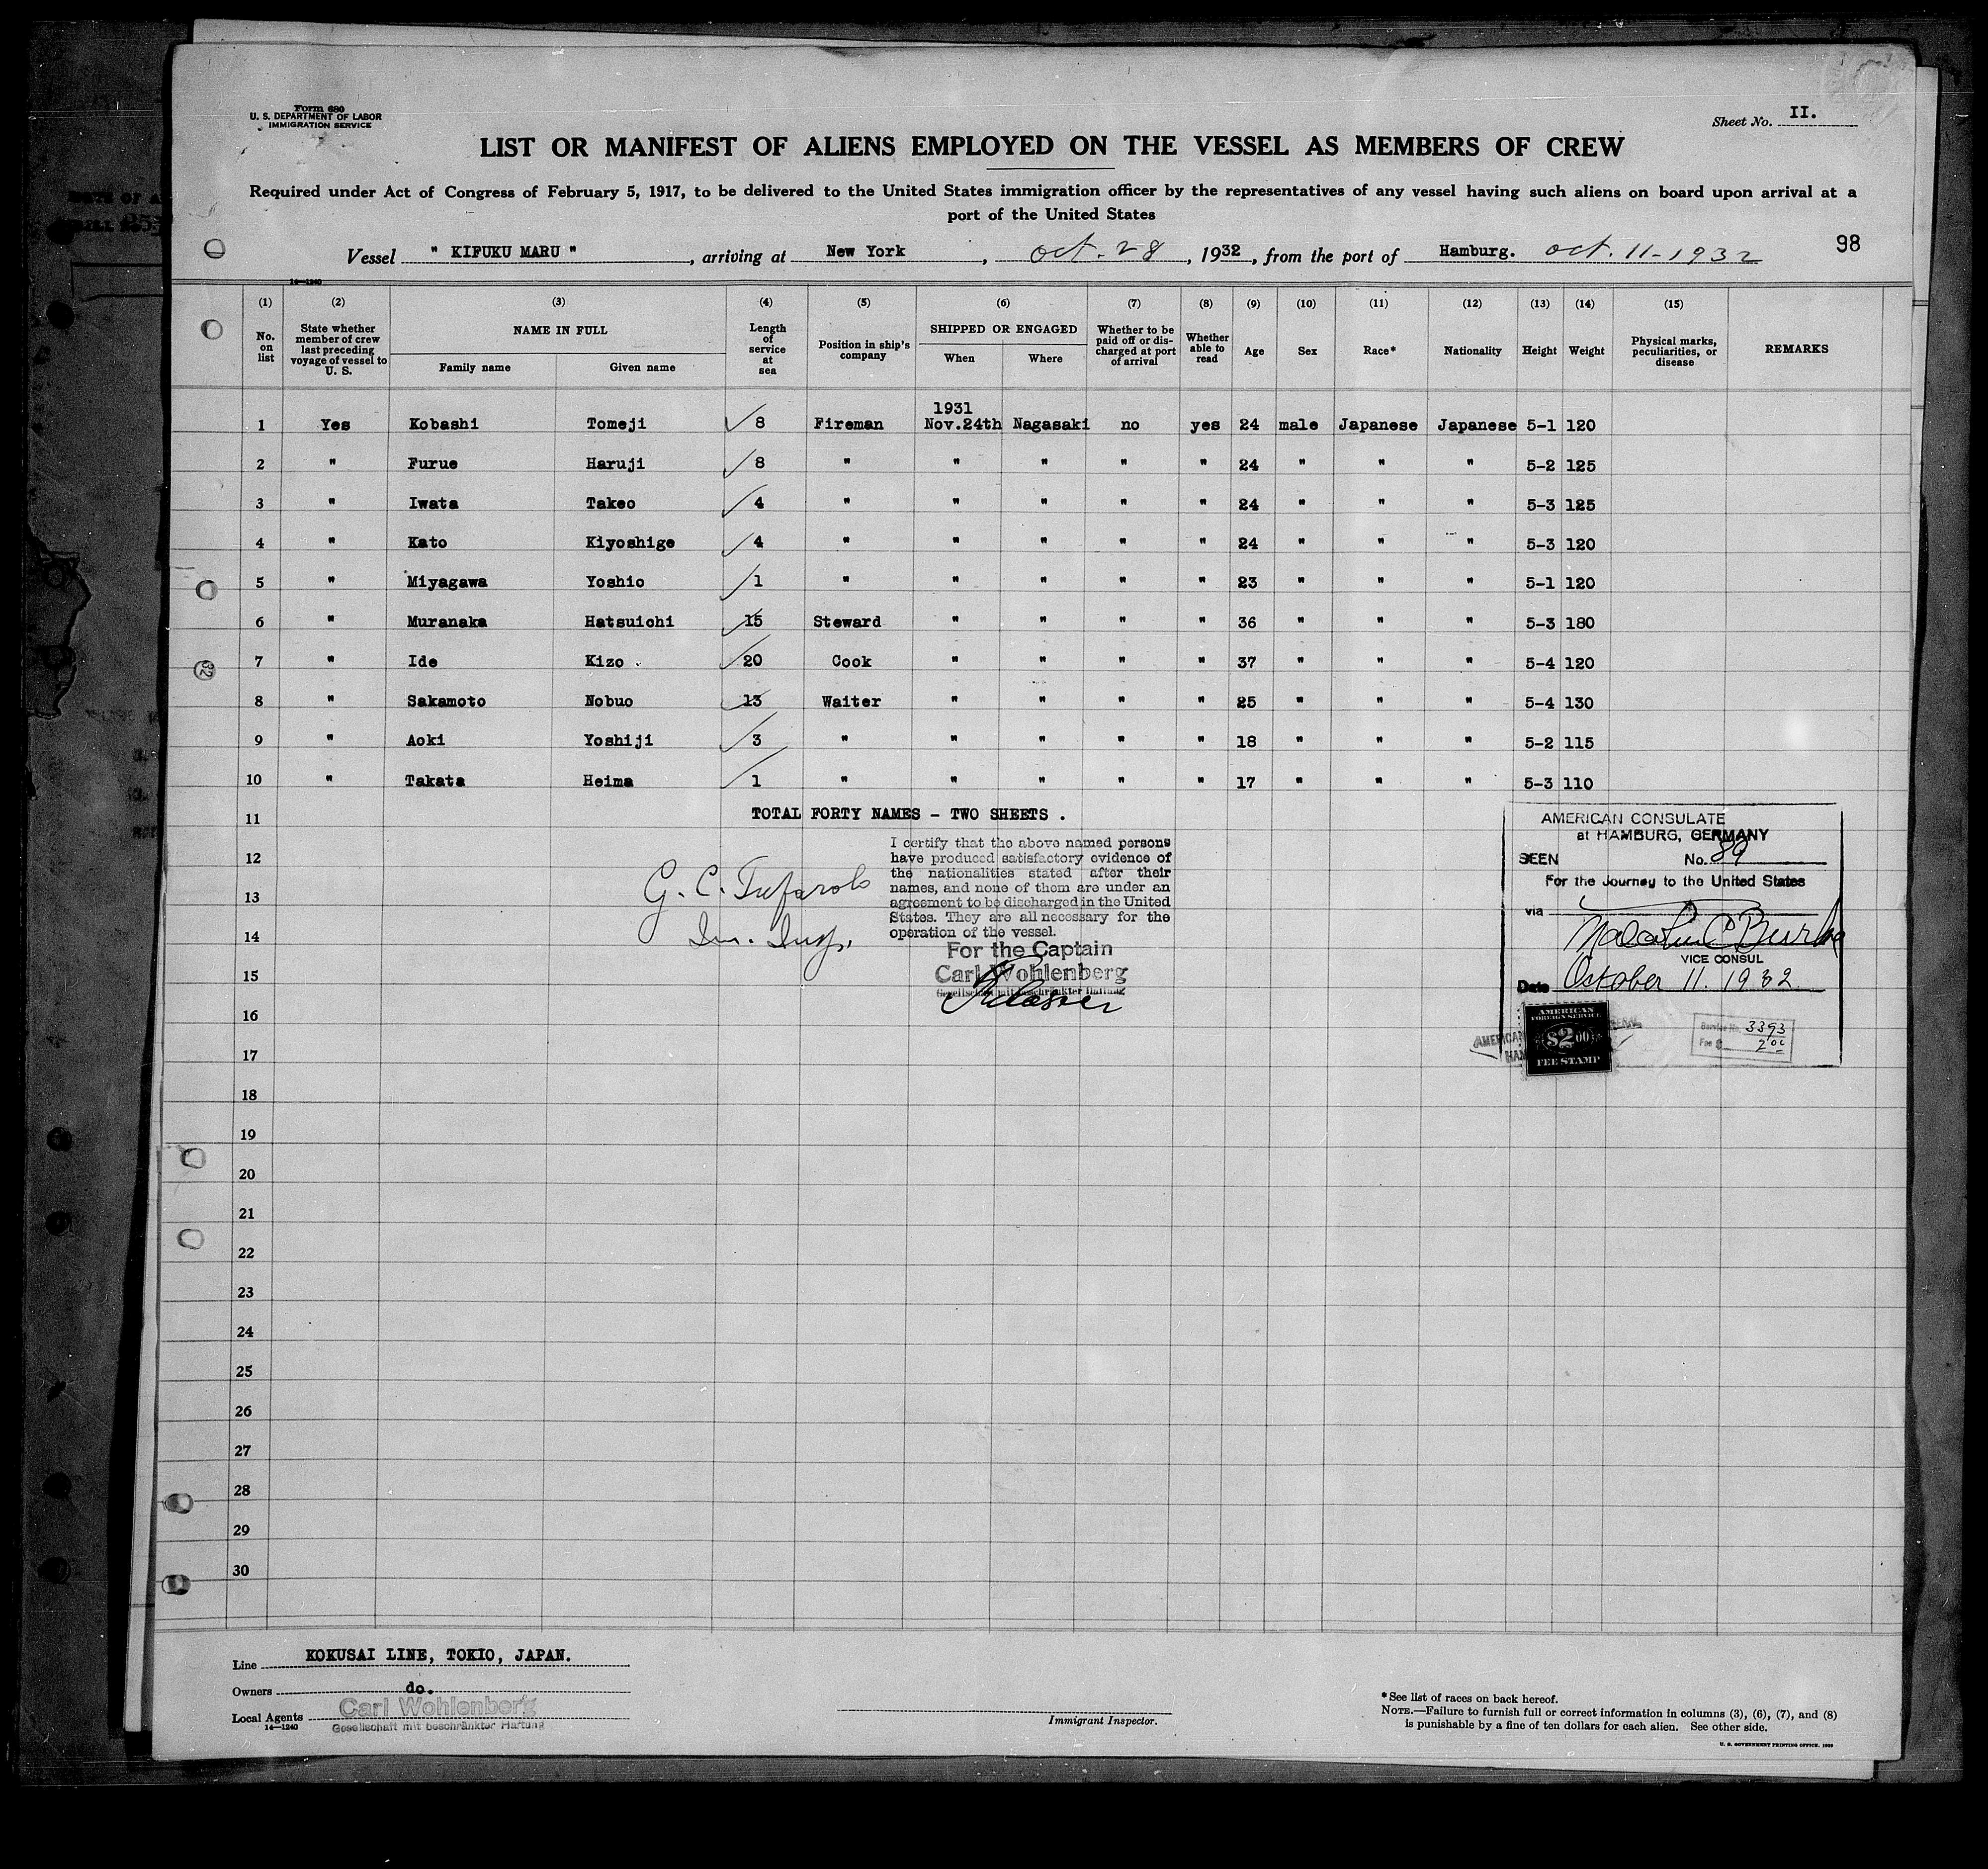 Form 680
U. S. DEPARTMENT OF LABOR
IMMIGRATION SERVICE
Sheet No. II.
LIST OR MANIFEST OF ALIENS EMPLOYED ON THE VESSEL AS MEMBERS OF CREW
Required under Act of Congress of February 5, 1917, to be delivered to the United States immigration officer by the representatives of any vessel having such aliens on board upon arrival at a
port of the United States
98
Vessel " KIFUKU MARU ", arriving at New York, Oct. 28, 1932, from the port of Hamburg. Oct. 11-1932
14—1240
(1) (2) (3) (4) (5) (6) (7) (8) (9) (10) (11) (12) (13) (14) (15)
No. on list
State whether member of crew last preceding voyage of vessel to U. S.
NAME IN FULL
Family name Given name
Length of service at sea
Position in ship's company
SHIPPED OR ENGAGED
When Where
Whether to be paid off or discharged at port of arrival
Whether able to read
Age Sex Race* Nationality Height Weight
Physical marks, peculiarities, or disease
REMARKS
1931
1 Yes Kobashi Tomeji 8 Fireman Nov.24th Nagasaki no yes 24 male Japanese Japanese 5-1 120
2 " Furue Haruji 8 " " " " " 24 " " " 5-2 125
3 " Iwata Takeo 4 " " " " " 24 " " " 5-3 125
4 " Kato Kiyoshige 4 " " " " " 24 " " " 5-3 120
5 " Miyagawa Yoshio 1 " " " " " 23 " " " 5-1 120
6 " Muranaka Hatsuichi 15 Steward " " " " 36 " " " 5-3 180
7 " Ide Kizo 20 Cook " " " " 37 " " " 5-4 120
8 " Sakamoto Nobuo 13 Waiter " " " " 25 " " " 5-4 130
9 " Aoki Yoshiji 3 " " " " " 18 " " " 5-2 115
10 " Takata Heima 1 " " " " " 17 " " " 5-3 110
11
TOTAL FORTY NAMES - TWO SHEETS .
12
13
14
15
16
17
18
19
20
21
22
23
24
25
26
27
28
29
30
I certify that the above named persons
have produced satisfactory evidence of
the nationalities stated after their
names, and none of them are under an
agreement to be discharged in the United
States. They are all necessary for the
operation of the vessel.
G. C. Tufarolo
Im. Insp.
For the Captain
Carl Wohlenberg
Gesellschaft mit beschränkter Haftung
AMERICAN CONSULATE
at HAMBURG, GERMANY
SEEN No. 89
For the Journey to the United States
via
Malcolm C Burke
VICE CONSUL
Date October 11. 1932
AMERICAN
FOREIGN SERVICE
$2.00
FEE STAMP
Service No. 3393
Fee $ 2.00
Line KOKUSAI LINE, TOKIO, JAPAN.
Owners do.
Local Agents Carl Wohlenberg
Gesellschaft mit beschränkter Haftung
14—1240
Immigrant Inspector.
*See list of races on back hereof.
NOTE.—Failure to furnish full or correct information in columns (3), (6), (7), and (8)
is punishable by a fine of ten dollars for each alien. See other side.
U. S. GOVERNMENT PRINTING OFFICE. 1929